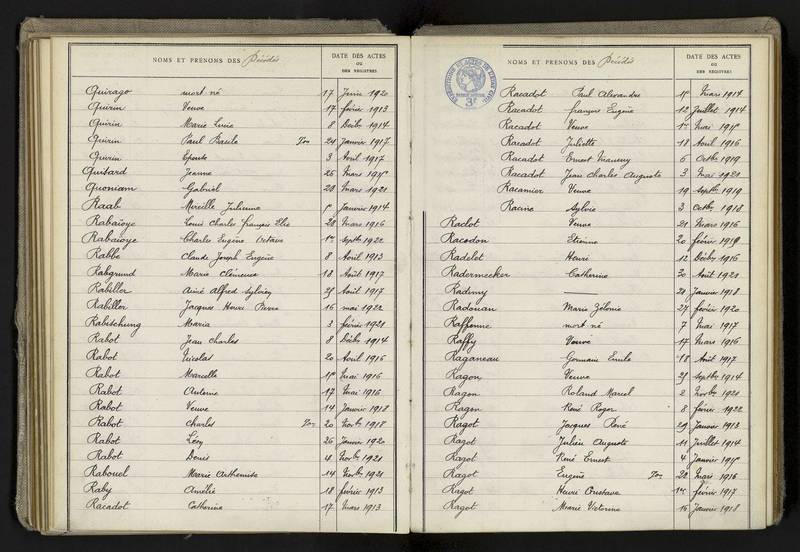 NOMS ET PRÉNOMS DES Décédés
DATE DES ACTES
OU
DES REGISTRES
Quirago mort né 17 Janvier 1920
Quirin Veuve 17 février 1913
Quirin Marie Lucie 8 Décbre 1914
Quirin Paul Raule Jon 24 Janvier 1917
Quirin Epouse 3 Avril 1917
Quisard Jeanne 26 Mars
Quoniam Gabriel 20 Mars 1921
Raab Mireille Julienne Janvier 1914
Rabaïoye Louis Charles françois Elie 28 Mars 1916
Rabaïoye Charles Eugène Octave 1er Septbre 1922
Rabbe Claude Joseph Eugène 8 Avril 1913
Rabgrund Marie Clémence 18 Août 1917
Rabiller Aimé Alfred Sylvère 25 Août 1917
Rabiller Jacques Henri Pierre 16 mai 1922
Rabischung Maria 3 février 1921
Rabot Jean Charles 8 Décbre 1914
Rabot Nicolas 20 Avril 1916
Rabot Marcelle Mai 1916
Rabot Antoine 17 Mai 1916
Rabot Veuve 14 Janvier 1918
Rabot Charles Jon 20 Novbre 1918
Rabot Léry 26 Janvier 1920
Rabot Denis 4 Novbre 1921
Rabouel Marie Arthemise 14 Novbre 1921
Raby Amélie 18 février 1913
Racadot Catherine 17 Mars 1913
NOMS ET PRÉNOMS DES Décédés
DATE DES ACTES
OU
DES REGISTRES
3F
Racadot Paul Alexandre Mars 1914
Racadot françois Eugène 12 Juillet 1914
Racadot Veuve 1er Mai
Racadot Juliette 18 Avril 1916
Racadot Ernest 6 Octbre 1919
Racadot Jean Charles Auguste 3 Mai 1921
Racamier Veuve 19 Septbre 1919
Racine Sylvie 3 Octbre 1918
Raclot Veuve 21 Mars 1916
Racodon Etienne 20 février 1919
Radelet Henri 12 Décbre 1916
Radermecker Catherine 30 Août 1921
Radimy 21 Janvier 1918
Radouan Marie Zélonie 27 février 1920
Rafferme mort né 7 Mai 1917
Raffy Veuve 17 Mars 1916
Raganeau Germain Emile 18 Août 1917
Ragon Veuve 25 Septbre 1914
Ragon Roland Marcel 2 Novbre 1921
Ragon René Roger 8 février 1922
Ragot Jacques René 29 Janvier 1913
Ragot Julien Auguste 11 Juillet 1914
Ragot René Ernest 4 Janvier
Ragot Eugène Jon 22 Mars 1916
Ragot Henri Gustave 1er février 1917
Ragot Marie Victorine 16 Janvier 1918